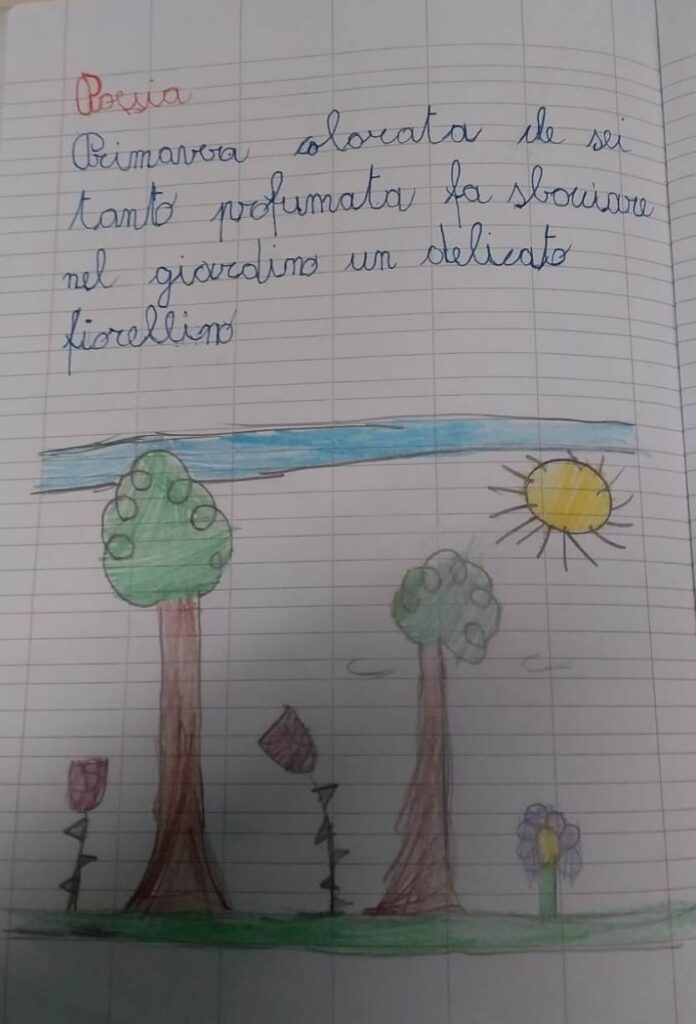 Poesia
Primavera colorata che sei
tanto profumata fa sbociare
nel giardino un delicato
fiorellino